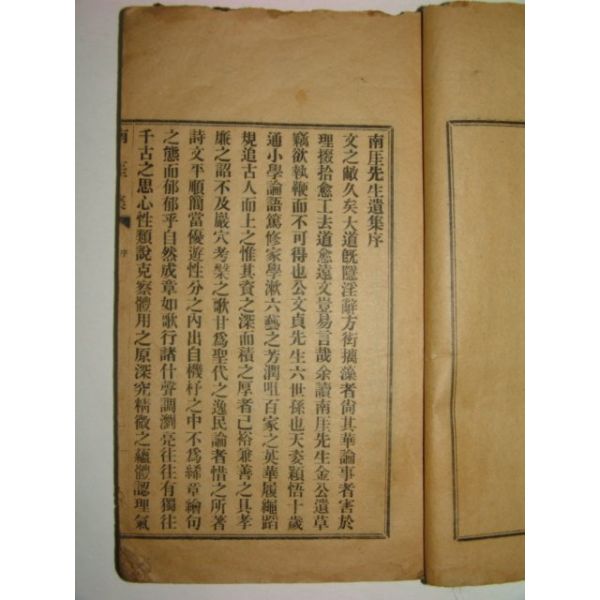 南厓先生遺集序
文之敝久矣大道旣隱淫辭方衒摛藻者尙其華論事者害於
理掇拾愈工去道愈遠文豈易言哉余讀南厓先生金公遺草
竊欲執鞭而不可得也公文貞先生六世孫也天姿穎悟十歲
通小學論語篤修家學漱六藝之芳潤咀百家之英華履繩蹈
規追古人而上之惟其資之深而積之厚者已裕兼善之具孝
廉之詔不及巖穴考槃之歌甘爲聖代之逸民論者惜之所著
詩文平順簡當優遊性分之內出自機杼之中不爲絺章繪句
之態而郁郁乎自然成章如歌行諸什聲調瀏亮往往有獨往
千古之思心性類說克察體用之原深究精微之蘊體認理氣
南厓集 序